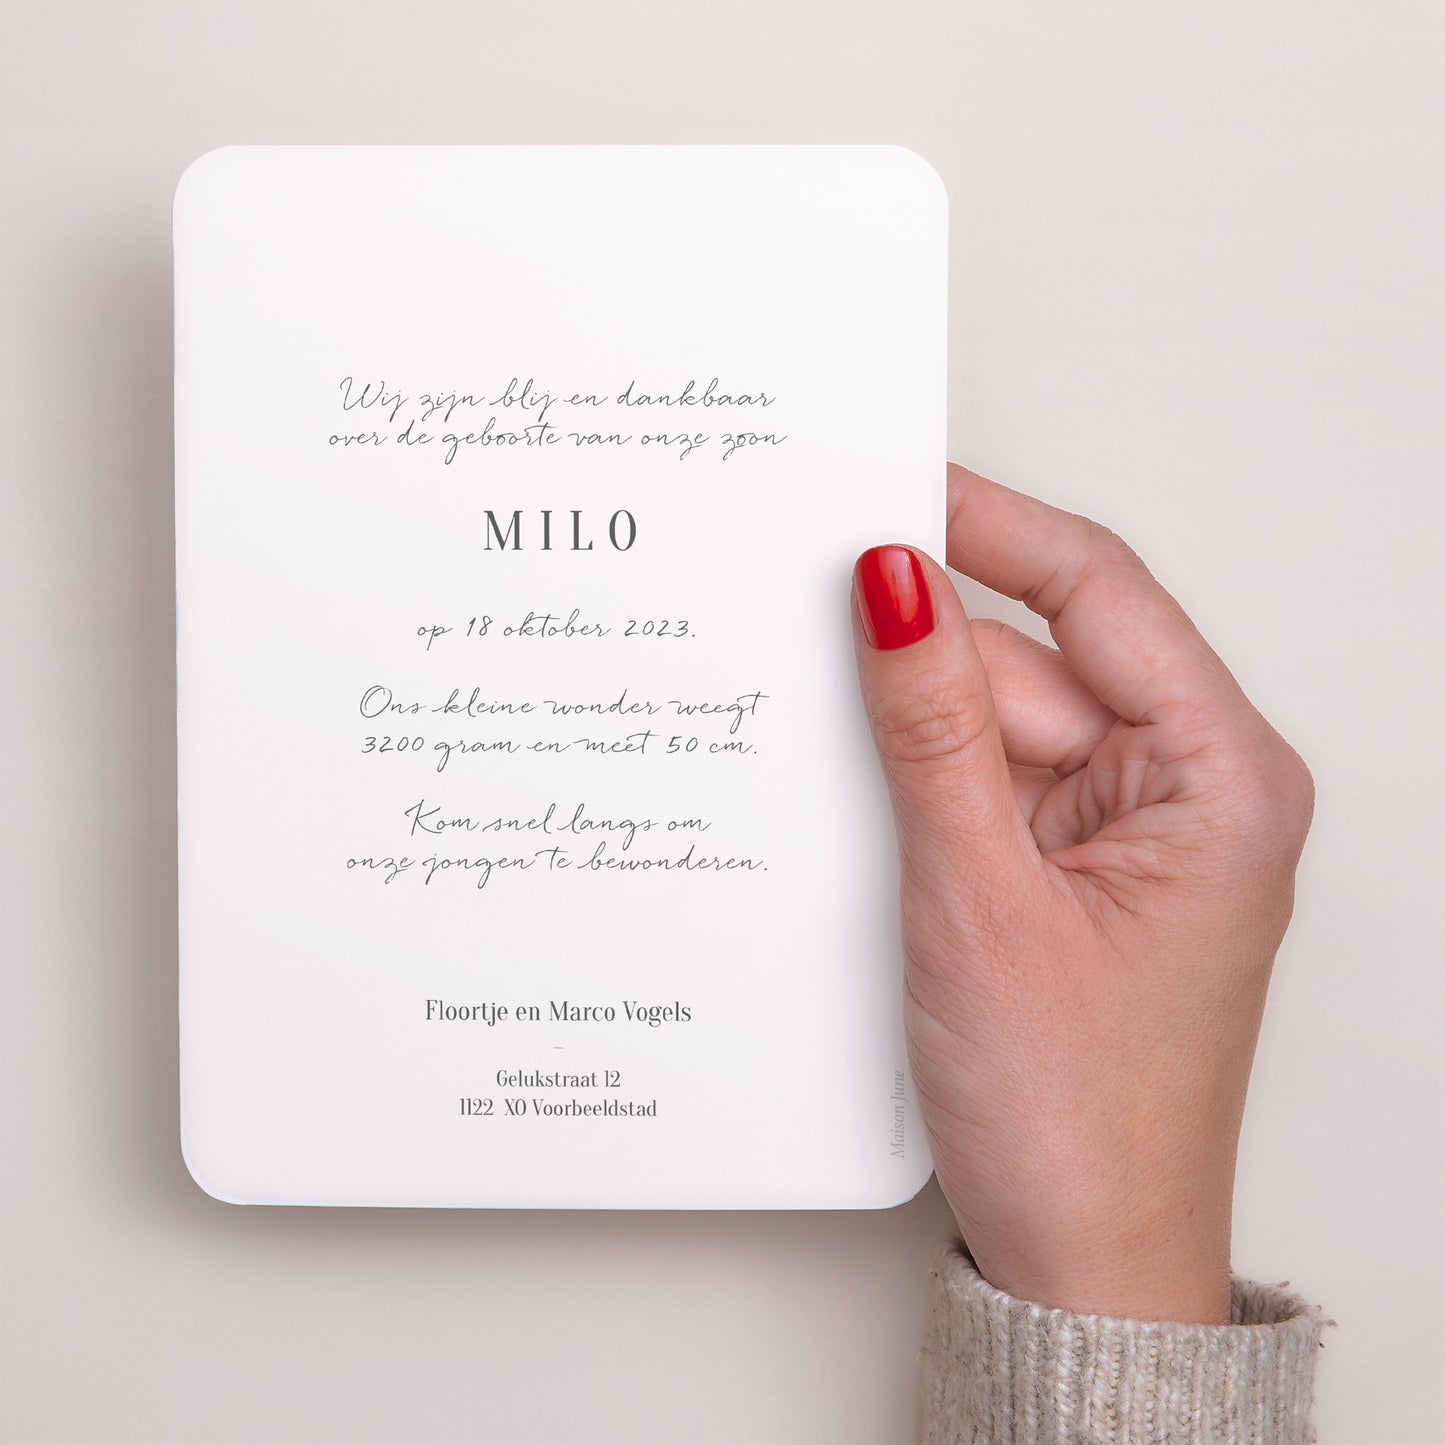 Wij zijn blij en dankbaar
over de geboorte van onze zoon
MILO
op 18 oktober 2023.
Ons kleine wonder weegt
3200 gram en meet 50 cm.
Kom snel langs om
onze jongen te bewonderen.
Floortje en Marco Vogels
–
Gelukstraat 12
1122 XO Voorbeeldstad
Maison June